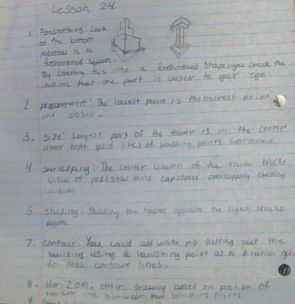 Lesson 24
1. Foreshortening: Look
at the bottom
pedestal is a
foreshortened square.
By turning this into a foreshortened shape, you create the
illusion that one part is closer to your eye.
2. placement: The lowest point is the nearest
closer.
3. Size: Largest part of the tower is in the center
where both guide lines of vanishing points
4. overlapping: The center column of the tower blocks
view of pedestal and capstone overlapping creating
5. Shading: Shading the tower opposite the light creates
depth
7. Contour: You could add
building using a vanishing point as a direction
to draw contour lines.
8. Horizon: entire drawing based on position of
line between two vanishing points.
9.